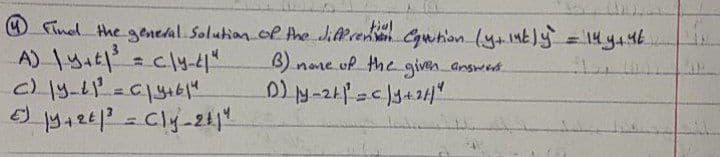 ④ Find the general solution of the diffrential Equation (y+14t)y` = 14y+4t
A) |y+t|³ = c|y-t|⁴ B) none of the given answers
C) |y-t|³ = c|y+t|⁴ D) |y-2t|³ = c|y+2t|⁴
E) |y+2t|³ = C|y-2t|⁴